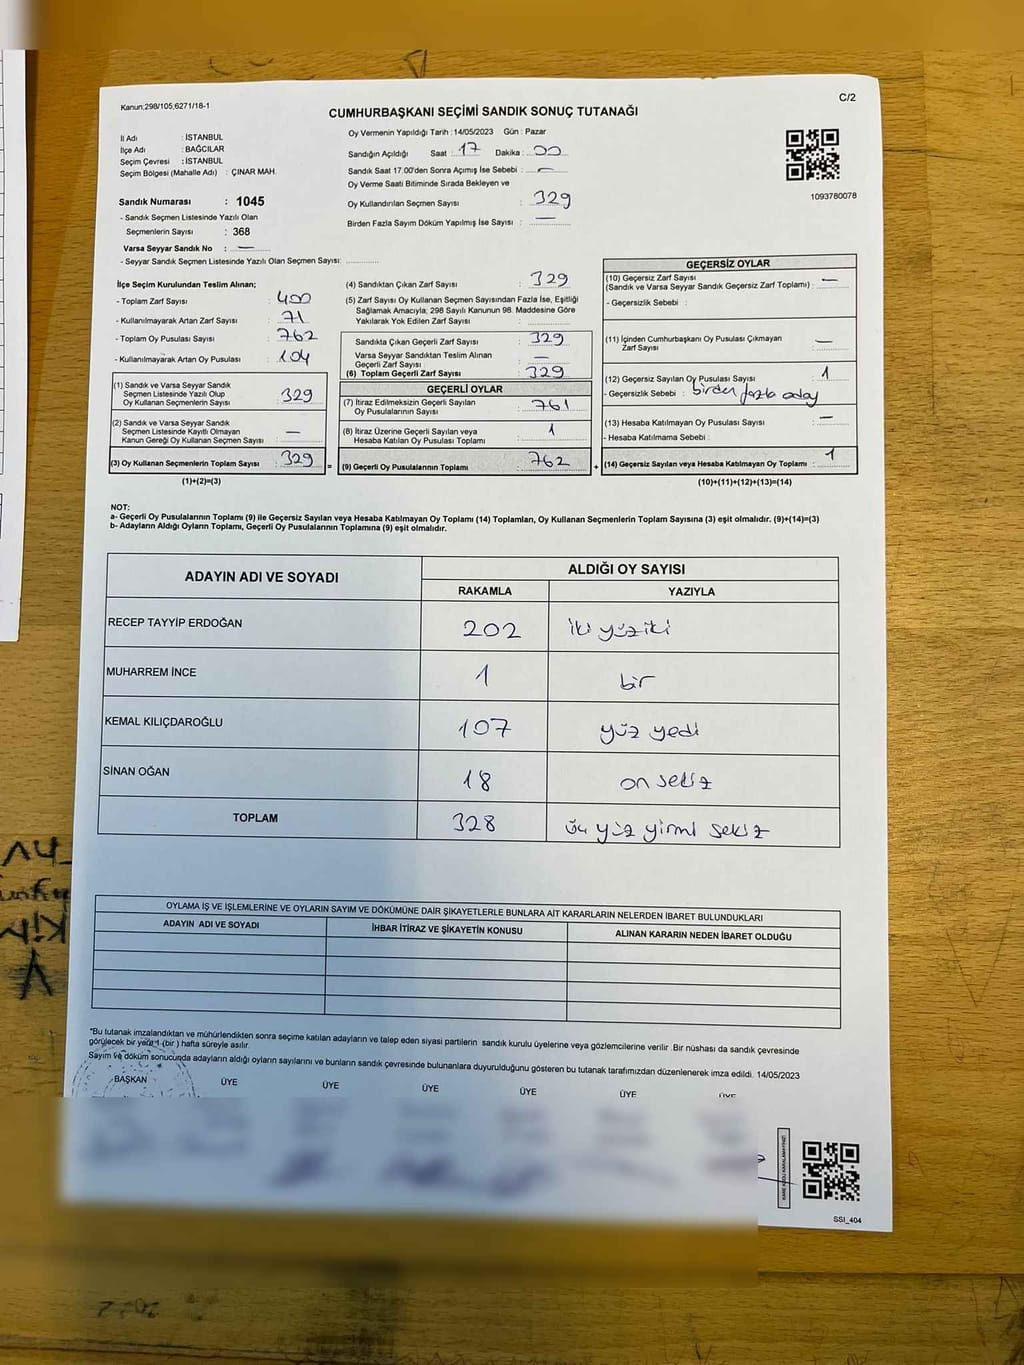 Kanun;298/105;6271/18-1
C/2
CUMHURBAŞKANI SEÇİMİ SANDIK SONUÇ TUTANAĞI
İl Adı : İSTANBUL
İlçe Adı : BAĞCILAR
Seçim Çevresi : İSTANBUL
Seçim Bölgesi (Mahalle Adı) : ÇINAR MAH.
Oy Vermenin Yapıldığı Tarih : 14/05/2023 Gün : Pazar
Sandığın Açıldığı Saat : 17 Dakika : 00
Sandık Saat 17.00'den Sonra Açımış İse Sebebi : —
Oy Verme Saati Bitiminde Sırada Bekleyen ve
Oy Kullandırılan Seçmen Sayısı : 329
Birden Fazla Sayım Döküm Yapılmış İse Sayısı : —
1093780078
Sandık Numarası : 1045
- Sandık Seçmen Listesinde Yazılı Olan
Seçmenlerin Sayısı : 368
Varsa Seyyar Sandık No : —
- Seyyar Sandık Seçmen Listesinde Yazılı Olan Seçmen Sayısı:
İlçe Seçim Kurulundan Teslim Alınan;
- Toplam Zarf Sayısı : 400
- Kullanılmayarak Artan Zarf Sayısı : 71
- Toplam Oy Pusulası Sayısı : 762
- Kullanılmayarak Artan Oy Pusulası : 104
(1) Sandık ve Varsa Seyyar Sandık
Seçmen Listesinde Yazılı Olup
Oy Kullanan Seçmenlerin Sayısı : 329
(2) Sandık ve Varsa Seyyar Sandık
Seçmen Listesinde Kayıtlı Olmayan
Kanun Gereği Oy Kullanan Seçmen Sayısı : —
(3) Oy Kullanan Seçmenlerin Toplam Sayısı : 329
(1)+(2)=(3)
=
(4) Sandıktan Çıkan Zarf Sayısı : 329
(5) Zarf Sayısı Oy Kullanan Seçmen Sayısından Fazla İse, Eşitliği
Sağlamak Amacıyla; 298 Sayılı Kanunun 98. Maddesine Göre
Yakılarak Yok Edilen Zarf Sayısı :
Sandıkta Çıkan Geçerli Zarf Sayısı : 329
Varsa Seyyar Sandıktan Teslim Alınan
Geçerli Zarf Sayısı : —
(6) Toplam Geçerli Zarf Sayısı : 329
GEÇERLİ OYLAR
(7) İtiraz Edilmeksizin Geçerli Sayılan
Oy Pusulalarının Sayısı : 761
(8) İtiraz Üzerine Geçerli Sayılan veya
Hesaba Katılan Oy Pusulası Toplamı : 1
(9) Geçerli Oy Pusulalarının Toplamı : 762
+
GEÇERSİZ OYLAR
(10) Geçersiz Zarf Sayısı
(Sandık ve Varsa Seyyar Sandık Geçersiz Zarf Toplamı) : —
- Geçersizlik Sebebi :
(11) İçinden Cumhurbaşkanı Oy Pusulası Çıkmayan
Zarf Sayısı : —
(12) Geçersiz Sayılan Oy Pusulası Sayısı : 1
- Geçersizlik Sebebi : birden fazla aday
(13) Hesaba Katılmayan Oy Pusulası Sayısı : —
- Hesaba Katılmama Sebebi :
(14) Geçersiz Sayılan veya Hesaba Katılmayan Oy Toplamı : 1
(10)+(11)+(12)+(13)=(14)
NOT:
a- Geçerli Oy Pusulalarının Toplamı (9) ile Geçersiz Sayılan veya Hesaba Katılmayan Oy Toplamı (14) Toplamları, Oy Kullanan Seçmenlerin Toplam Sayısına (3) eşit olmalıdır. (9)+(14)=(3)
b- Adayların Aldığı Oyların Toplamı, Geçerli Oy Pusulalarının Toplamına (9) eşit olmalıdır.
ADAYIN ADI VE SOYADI
ALDIĞI OY SAYISI
RAKAMLA YAZIYLA
RECEP TAYYİP ERDOĞAN 202 iki yüz iki
MUHARREM İNCE 1 bir
KEMAL KILIÇDAROĞLU 107 yüz yedi
SİNAN OĞAN 18 on sekiz
TOPLAM 328 üç yüz yirmi sekiz
OYLAMA İŞ VE İŞLEMLERİNE VE OYLARIN SAYIM VE DÖKÜMÜNE DAİR ŞİKAYETLERLE BUNLARA AİT KARARLARIN NELERDEN İBARET BULUNDUKLARI
ADAYIN ADI VE SOYADI İHBAR İTİRAZ VE ŞİKAYETİN KONUSU ALINAN KARARIN NEDEN İBARET OLDUĞU
*Bu tutanak imzalandıktan ve mühürlendikten sonra seçime katılan adayların ve talep eden siyasi partilerin sandık kurulu üyelerine veya gözlemcilerine verilir. Bir nüshası da sandık çevresinde
görülecek bir yere 1 (bir) hafta süreyle asılır.
Sayım ve döküm sonucunda adayların aldığı oyların sayılarını ve bunların sandık çevresinde bulunanlara duyurulduğunu gösteren bu tutanak tarafımızdan düzenlenerek imza edildi. 14/05/2023
BAŞKAN ÜYE ÜYE ÜYE ÜYE ÜYE ÜYE
SSI_404